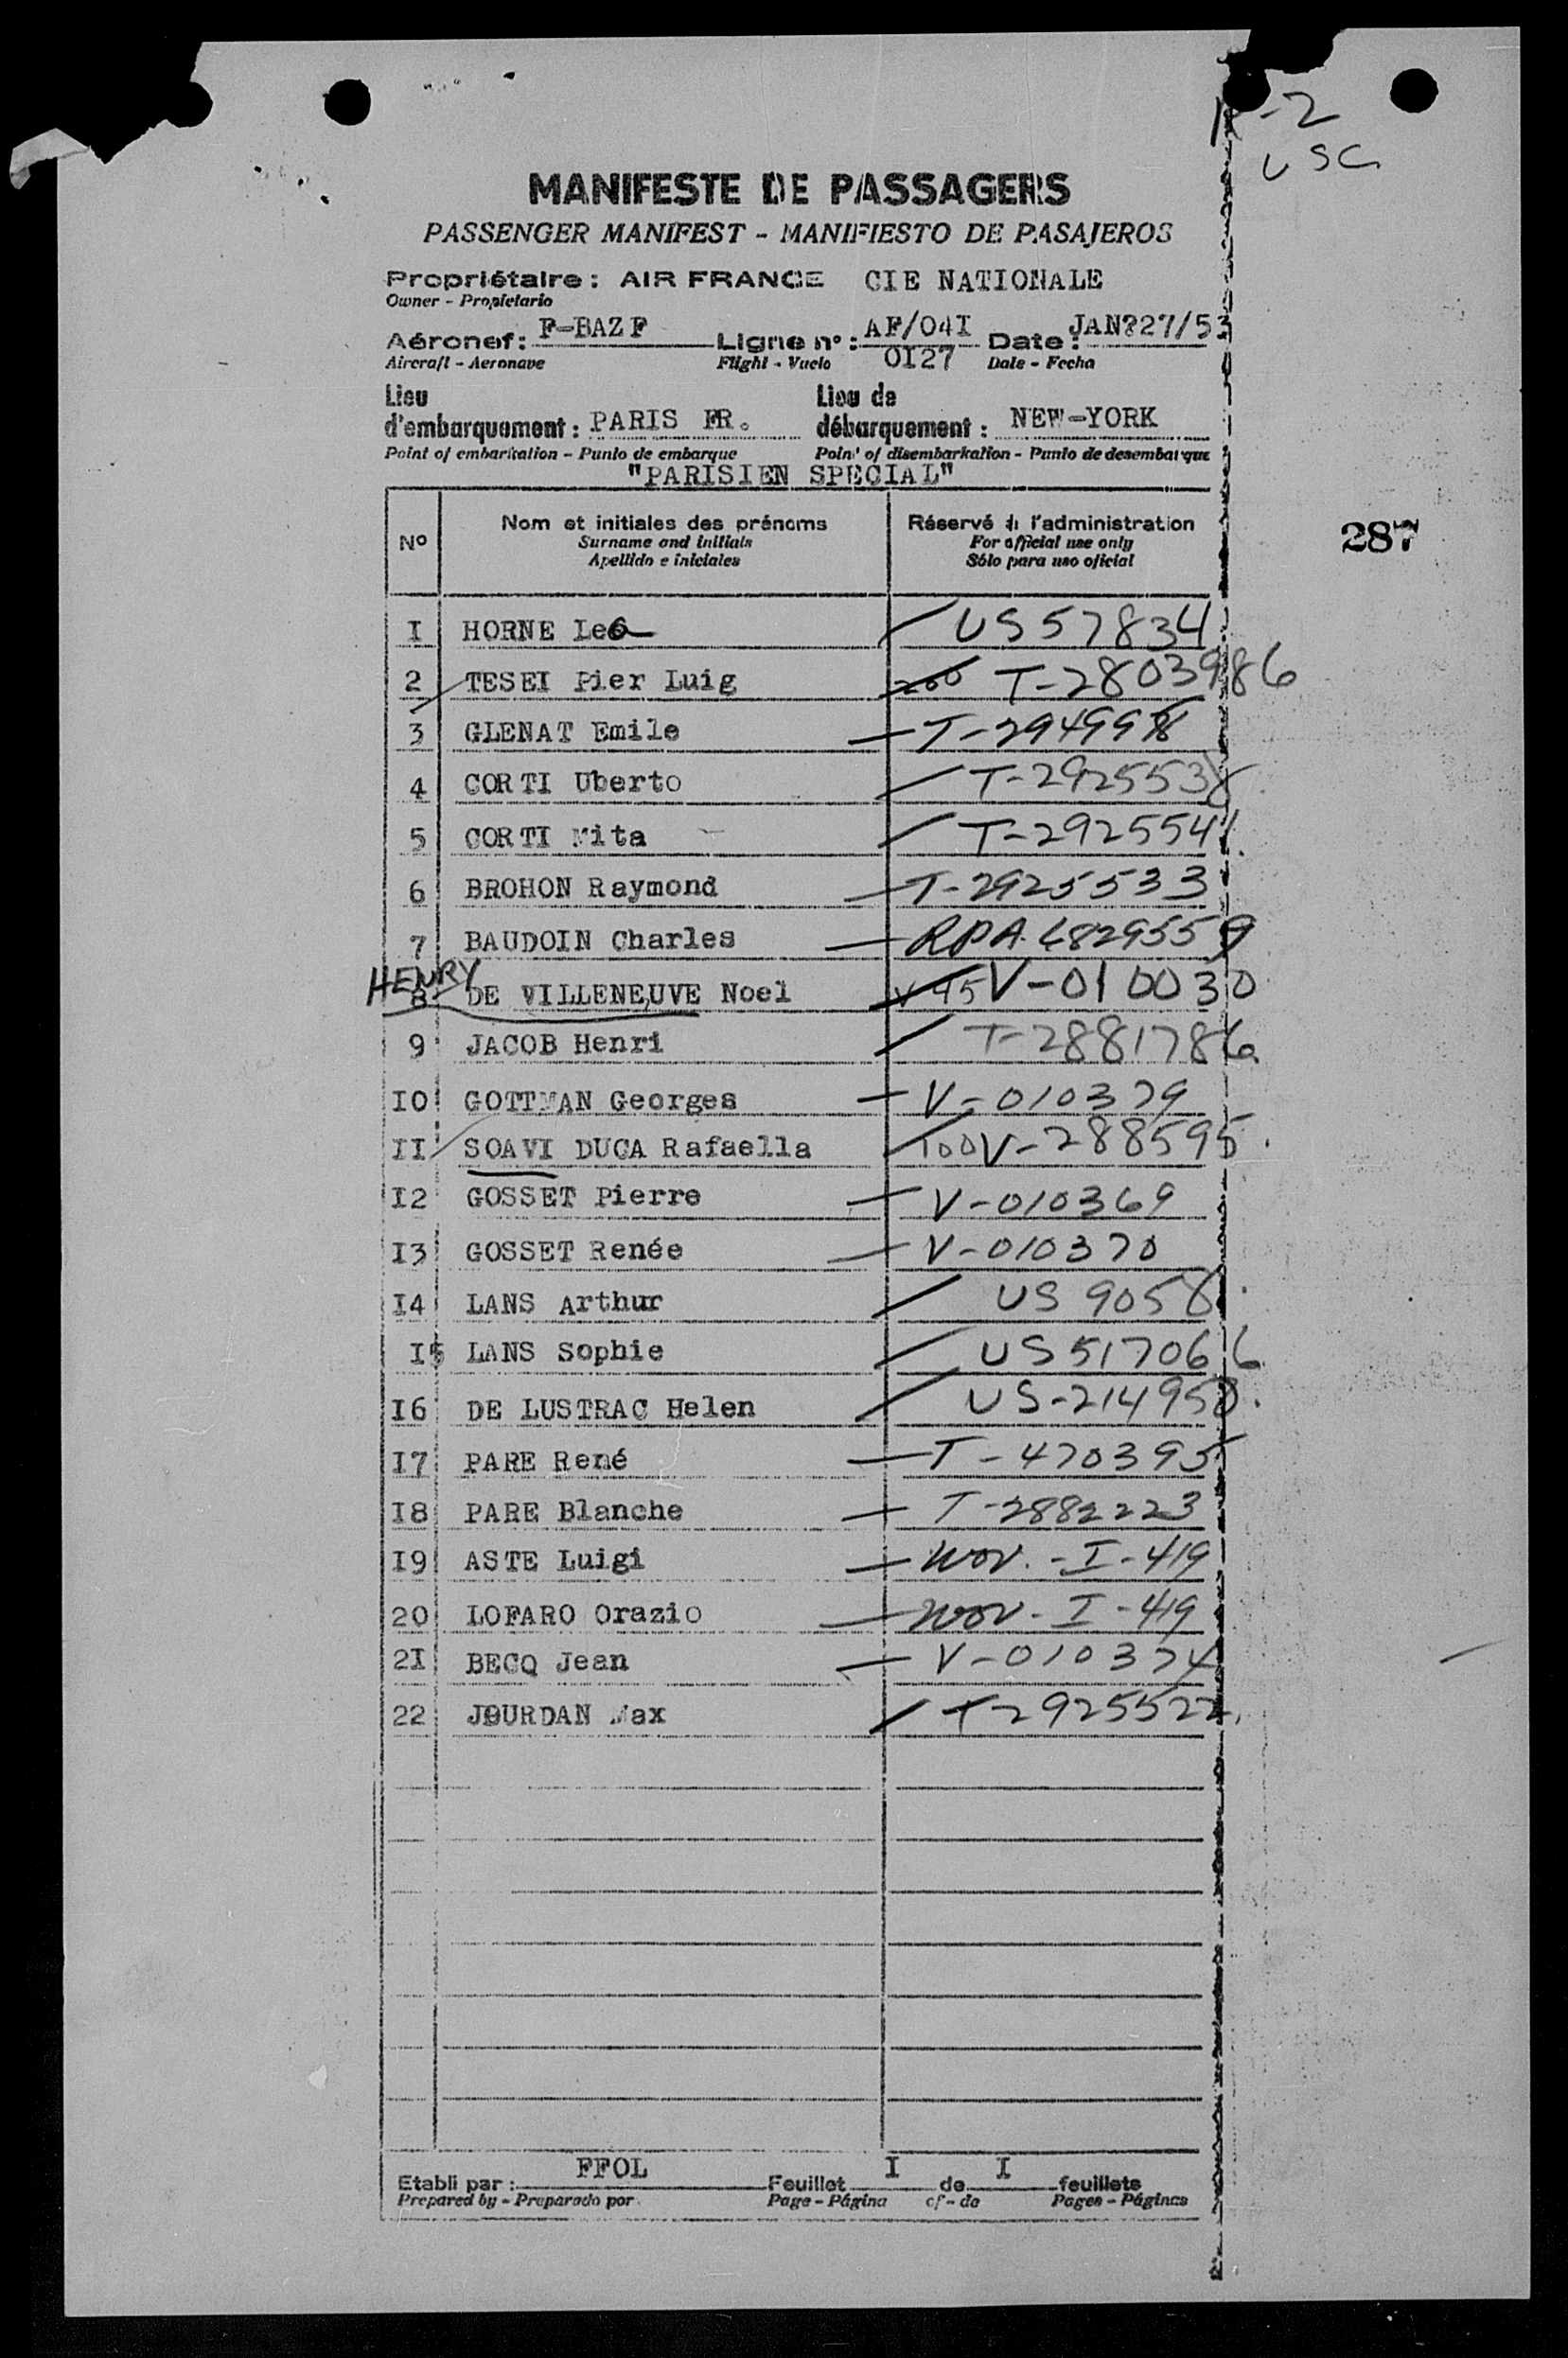 R-2
USC
MANIFESTE DE PASSAGERS
PASSENGER MANIFEST - MANIFIESTO DE PASAJEROS
Propriétaire : AIR FRANCE CIE NATIONALE
Owner - Propietario
Aéronef : F-BAZF Ligne n° : AF/04I Date : JAN?27/53
Aircraft - Aeronave Flight - Vuelo 0I27 Date - Fecha
Lieu d'embarquement : PARIS FR. Lieu de débarquement : NEW-YORK
Point of embarkation - Punto de embarque Point of disembarkation - Punto de desembarque
"PARISIEN SPECIAL"
N° Nom et initiales des prénoms Réservé à l'administration
Surname and initials For official use only
Apellido e iniciales Sólo para uso oficial
287
I HORNE Leo US 57834
2 TESEI Pier Luig T-2803986
3 GLENAT Emile T-2949998
4 CORTI Uberto T-2925538
5 CORTI Mita T-2925541
6 BROHON Raymond T-2925533
7 BAUDOIN Charles RPA. 6829559
HENRY
8 DE VILLENEUVE Noel V-010030
9 JACOB Henri T-2881786
I0 GOTTMAN Georges V-010379
II SOAVI DUCA Rafaella V-288595
I2 GOSSET Pierre V-010369
I3 GOSSET Renée V-010370
I4 LANS Arthur US 9058
I5 LANS Sophie US 517066
I6 DE LUSTRAC Helen US-214958
I7 PARE René T-470395
I8 PARE Blanche T-2882223
I9 ASTE Luigi WOV. - I - 419
20 LOFARO Orazio WOV - I - 419
2I BECQ Jean V-010374
22 JOURDAN Max T-2925522
Etabli par : FFOL Feuillet I de I feuillets
Prepared by - Preparado por Page - Página of - de Pages - Páginas